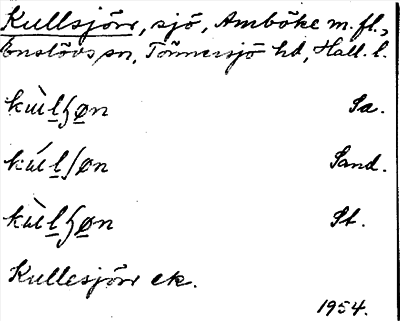 Kullsjön, sjö, Amböke m. fl.,
Enslövs sn, Tönnersjö hd, Hall. l.
kùlʃøn Sa.
kúlʃøn Sand.
kùlʃøn St.
Kullesjön ek.
1954.